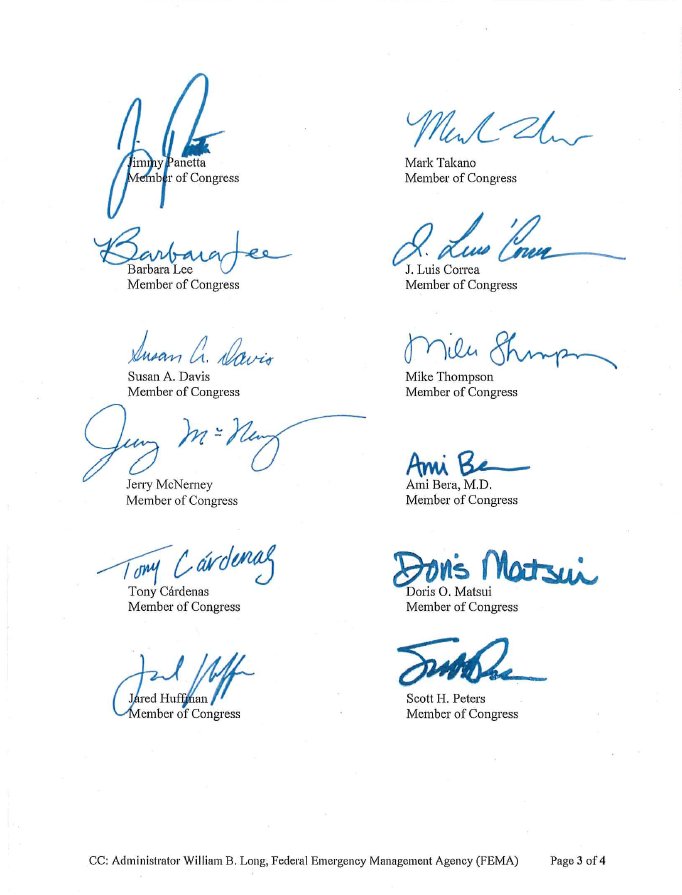 Jimmy Panetta
Member of Congress
Mark Takano
Member of Congress
Barbara Lee
Barbara Lee
Member of Congress
J. Luis Correa
J. Luis Correa
Member of Congress
Susan A. Davis
Susan A. Davis
Member of Congress
Mike Thompson
Mike Thompson
Member of Congress
Jerry McNerney
Jerry McNerney
Member of Congress
Ami Be
Ami Bera, M.D.
Member of Congress
Tony Cárdenas
Tony Cárdenas
Member of Congress
Doris Matsui
Doris O. Matsui
Member of Congress
Jared Huffman
Member of Congress
Scott H. Peters
Member of Congress
CC: Administrator William B. Long, Federal Emergency Management Agency (FEMA) Page 3 of 4